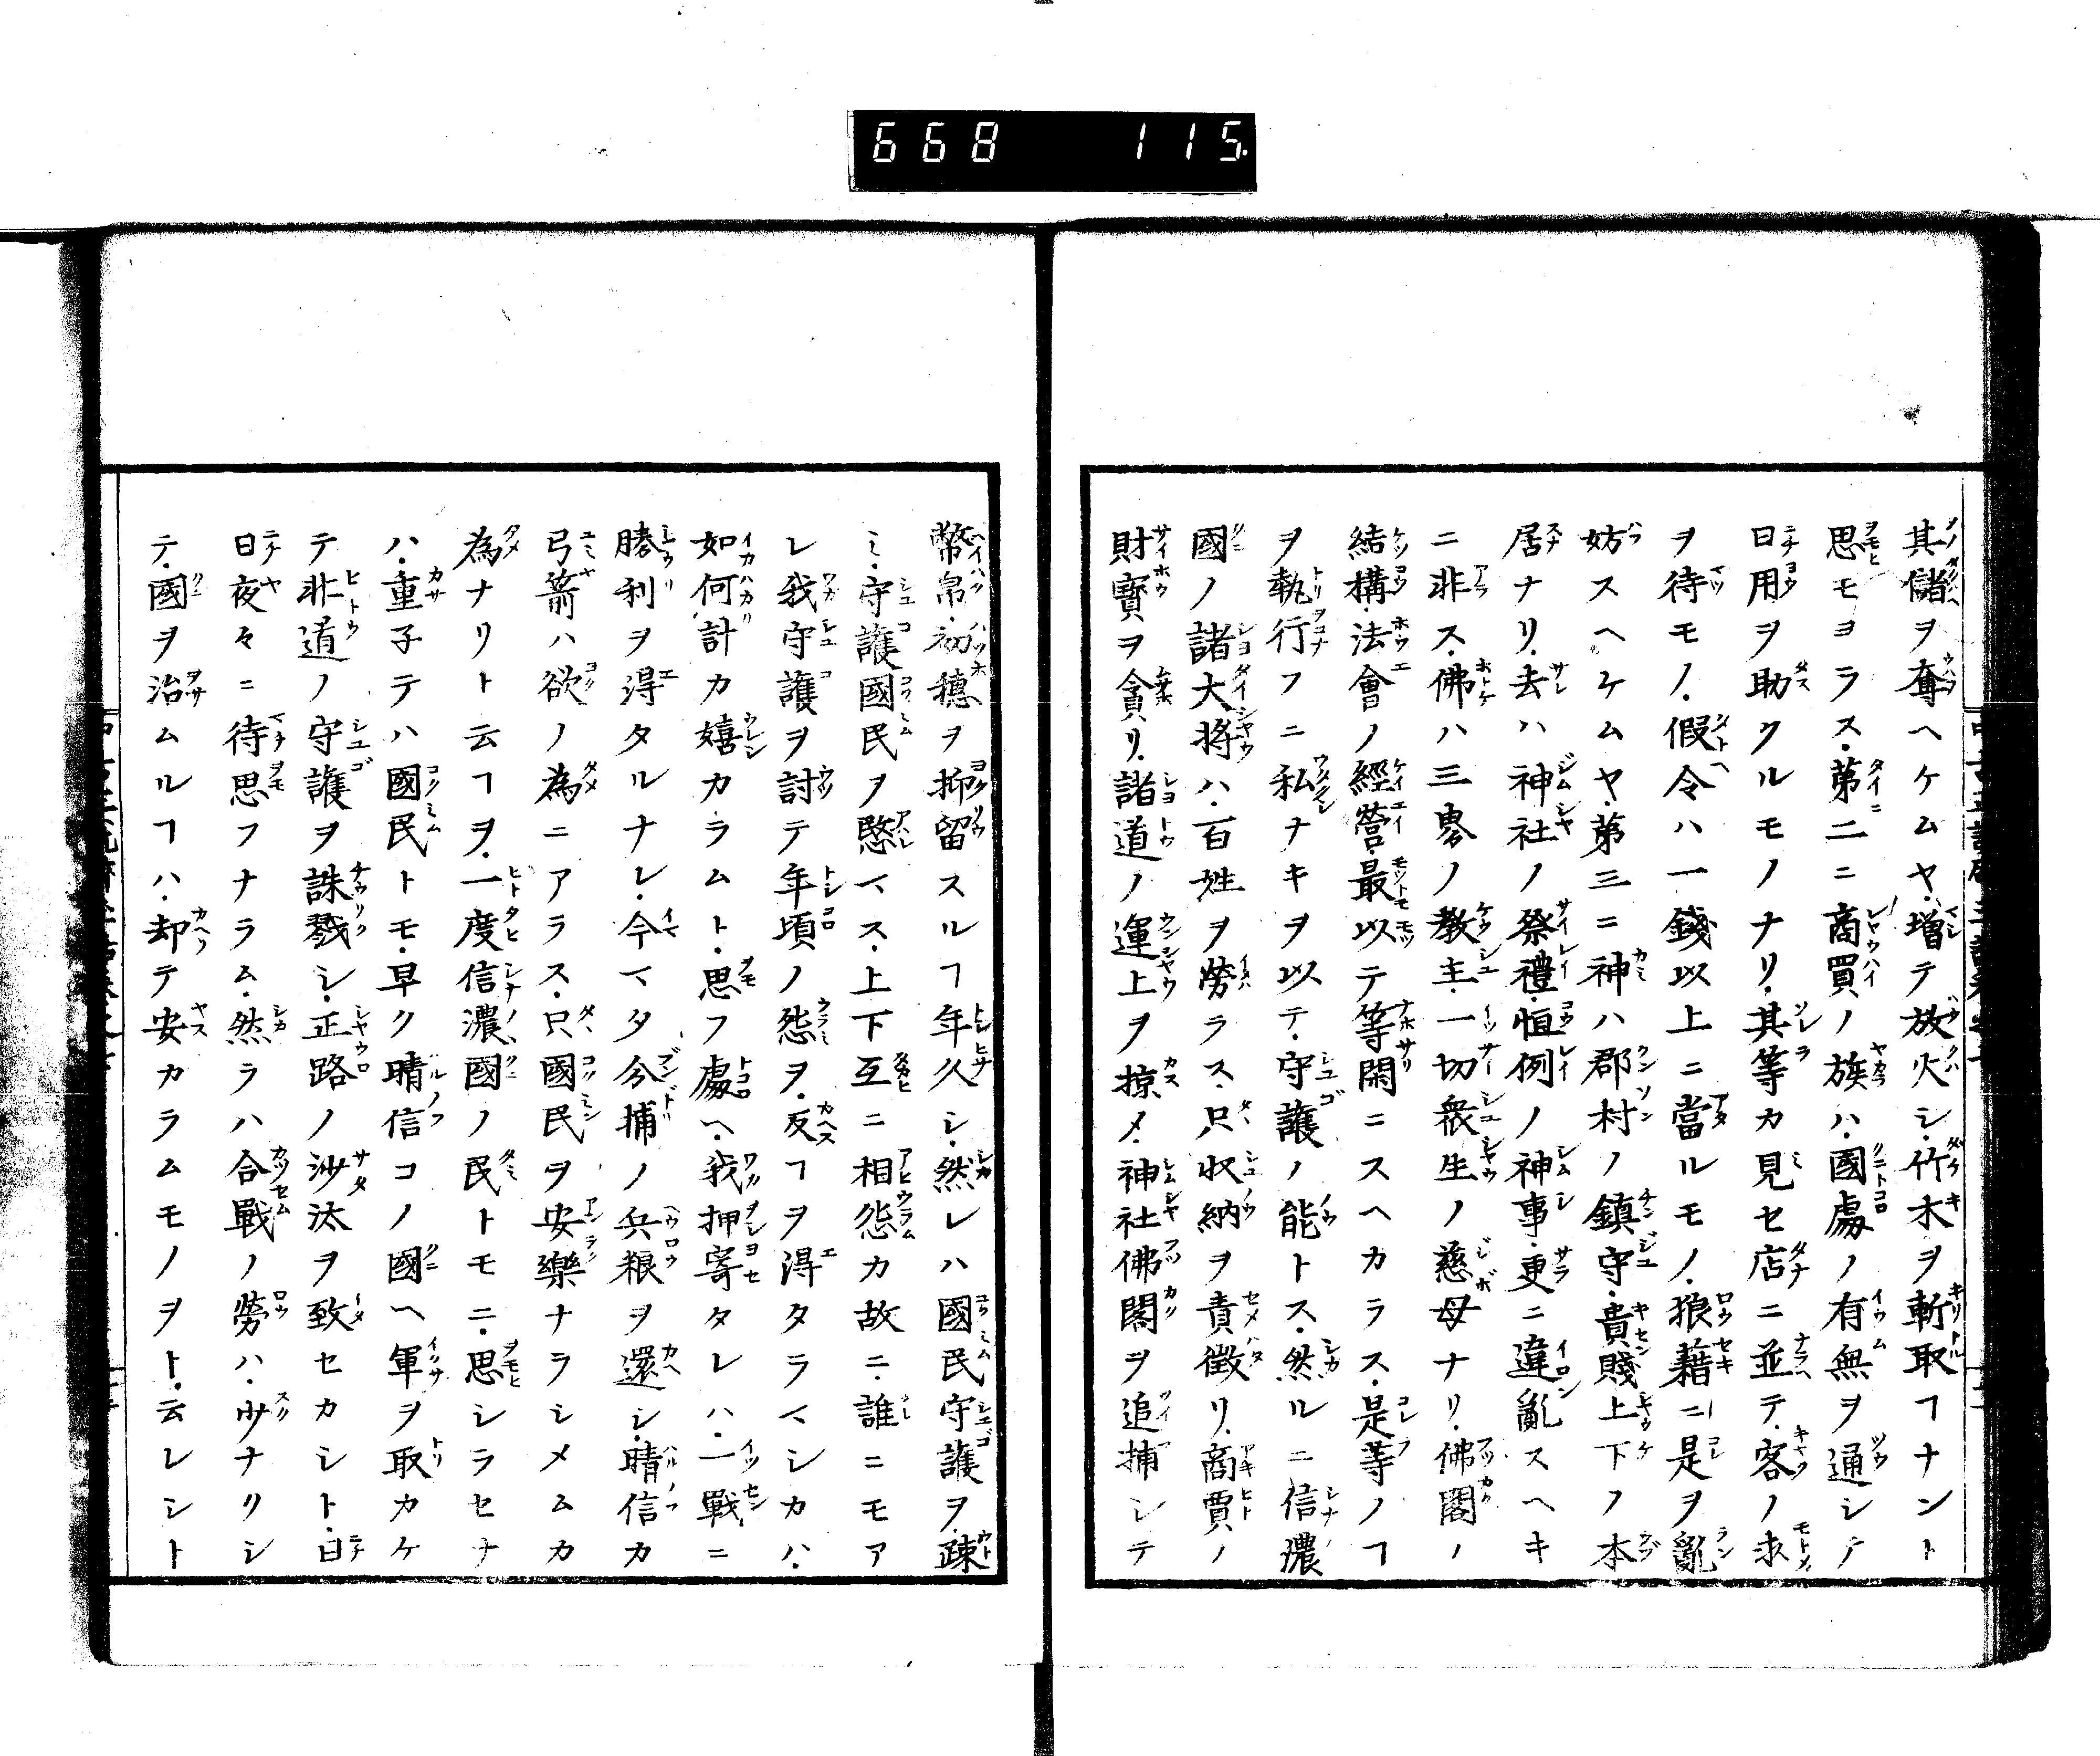 668 115
其儲ヲ奪ヘケムヤ、増テ放火シ、竹木ヲ斬取ヿナント
思モヨラス、第二ニ商買ノ族ハ、國處ノ有無ヲ通シテ
日用ヲ助クルモノナリ、其等カ見セ店ニ並テ、客ノ求
ヲ待モノ、假令ハ一錢以上ニ當ルモノ、狼藉ニ是ヲ亂
妨スヘケムヤ、第三ニ神ハ郡村ノ鎮守、貴賤上下ノ本
居ナリ、去ハ神社ノ祭禮、恒例ノ神事、更ニ違亂スヘキ
ニ非ス、佛ハ三界ノ教主、一切衆生ノ慈母ナリ、佛閣ノ
結構、法會ノ經營、最以テ等閑ニスヘカラス、是等ノヿ
ヲ執行フニ私ナキヲ以テ、守護ノ能トス、然ルニ信濃
國ノ諸大將ハ、百姓ヲ勞ラス、只收納ヲ責徴リ、商賈ノ
財寳ヲ貪リ、諸道ノ運上ヲ掠メ、神社佛閣ヲ追捕シテ
幣帛、初穗ヲ抑留スルヿ年久シ、然レハ國民守護ヲ疎
ミ、守護國民ヲ愍マス、上下互ニ相怨カ故ニ、誰ニモア
レ我守護ヲ討テ年頃ノ怨ヲ、反ヿヲ得タラマシカハ、
如何計カ嬉カラムト、思フ處ヘ、我押寄タレハ、一戰ニ
勝利ヲ得タルナレ、今マタ分捕ノ兵粮ヲ還シ、晴信カ
弓箭ハ欲ノ為ニアラス、只國民ヲ安樂ナラシメムカ
為ナリト云ヿヲ、一度信濃國ノ民トモニ、思シラセナ
ハ、重子テハ國民トモ、早ク晴信コノ國ヘ軍ヲ取カケ
テ非道ノ守護ヲ誅戮シ、正路ノ沙汰ヲ致セカシト、日
日夜々ニ待思フナラム、然ラハ合戰ノ勞ハ、少ナクシ
テ、國ヲ治ムルヿハ、却テ安カラムモノヲト、云レシト